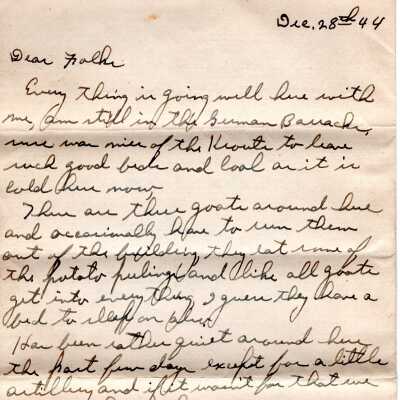 Dec. 28th 44
Dear Folks
Every thing is going well here with
me, am still in the German Barracks,
sure was nice of the Krouts to leave
such good beds and coal as it is
cold here now
There are three goats around here
and occasionally have to run them
out of the building, they eat some of
the potato peelings and like all goats
get into everything, I guess they have a
bed to sleep on also.
Has been rather quiet around here
the past few days except for a little
artillery and if it wasn't for that we